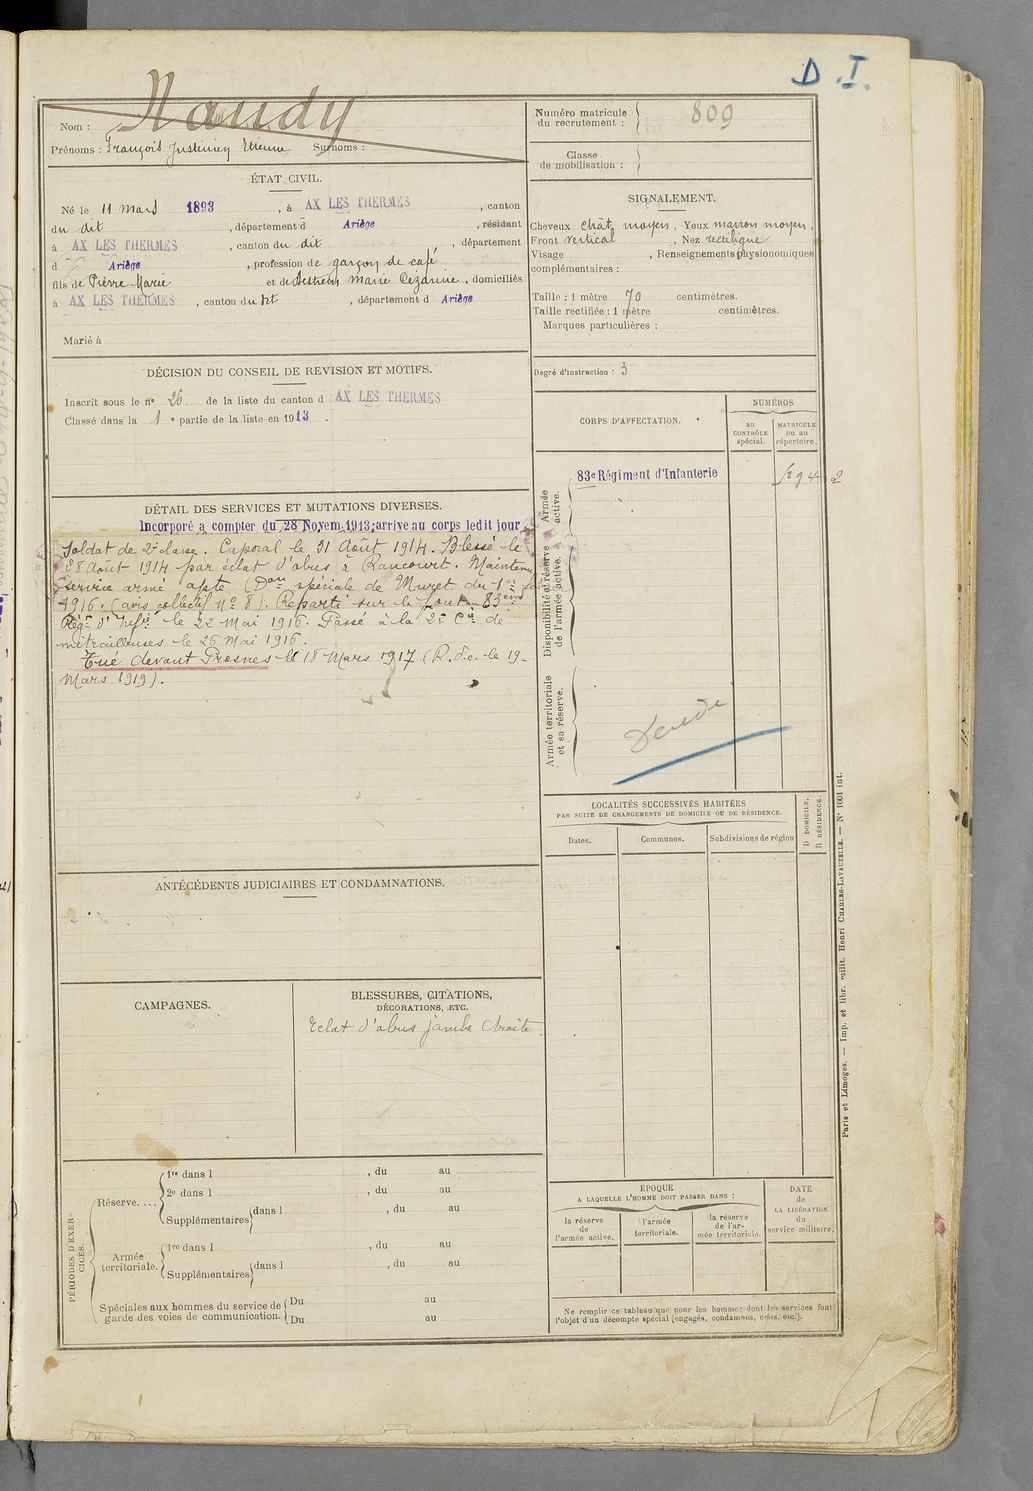 D.I.
Nom : Naudy
Prénoms : François Justinien Etienne Surnoms :
Numéro matricule du recrutement : 809
Classe de mobilisation :
ÉTAT CIVIL.
Né le 11 mars 1893, à AX LES THERMES, canton
du dit, département d Ariège, résidant
à AX LES THERMES, canton du dit, département
d Ariège, profession de garçon de café,
fils de Pierre Marie et de Marie Cezarine, domiciliés
à AX LES THERMES, canton du dit, département d Ariège
Marié à
SIGNALEMENT.
Cheveux chât moyen, Yeux marron moyen,
Front vertical, Nez rectiligne
Visage , Renseignements physionomiques
complémentaires :
Taille : 1 mètre 70 centimètres.
Taille rectifiée : 1 mètre centimètres.
Marques particulières :
Degré d'instruction : 3
DÉCISION DU CONSEIL DE REVISION ET MOTIFS.
Inscrit sous le n° 26 de la liste du canton d AX LES THERMES
Classé dans la 1e partie de la liste en 1913.
CORPS D'AFFECTATION.
NUMÉROS
au CONTRÔLE spécial.
MATRICULE ou au répertoire.
83e Régiment d'Infanterie
Armée active.
Disponibilité et réserve de l'armée active.
Armée territoriale et sa réserve.
DÉTAIL DES SERVICES ET MUTATIONS DIVERSES.
Incorporé a compter du 28 Novem. 1913; arrive au corps ledit jour
Soldat de 2e classe. Caporal le 31 Août 1914. Blessé le
28 août 1914 par éclat d'obus à Raucourt. Maintenu
service armé apte (Don spéciale de Muret du 1er
1916. (avis collectif n° 8). Reparti sur le front au 83ème
Régt d'Infrie le 22 Mai 1916. Passé à la 2e Cie de
mitrailleuses le 26 Mai 1916.
Tué devant Prosnes le 18 Mars 1917 (R. d.c. le 19
Mars 1919).
LOCALITÉS SUCCESSIVES HABITÉES
PAR SUITE DE CHANGEMENTS DE DOMICILE OU DE RÉSIDENCE.
Dates.
Communes.
Subdivisions de région
D DOMICILE, R RÉSIDENCE.
ANTÉCÉDENTS JUDICIAIRES ET CONDAMNATIONS.
CAMPAGNES.
BLESSURES, CITATIONS,
DÉCORATIONS, ETC.
Eclat d'obus jambe droite
PÉRIODES D'EXERCICES.
Réserve....
1re dans l , du au
2e dans l , du au
Supplémentaires dans l , du au
Armée territoriale.
1re dans l , du au
Supplémentaires dans l , du au
Spéciales aux hommes du service de garde des voies de communication.
Du au
Du au
ÉPOQUE
A LAQUELLE L'HOMME DOIT PASSER DANS :
la réserve de l'armée active.
l'armée territoriale.
la réserve de l'armée territoriale.
DATE de LA LIBÉRATION du service militaire.
Ne remplir ce tableau que pour les hommes dont les services font
l'objet d'un décompte spécial (engagés, condamnés, omis, etc.).
Paris et Limoges. — Imp. et libr. milit. Henri CHARLES-LAVAUZELLE. — N° 1001 int.